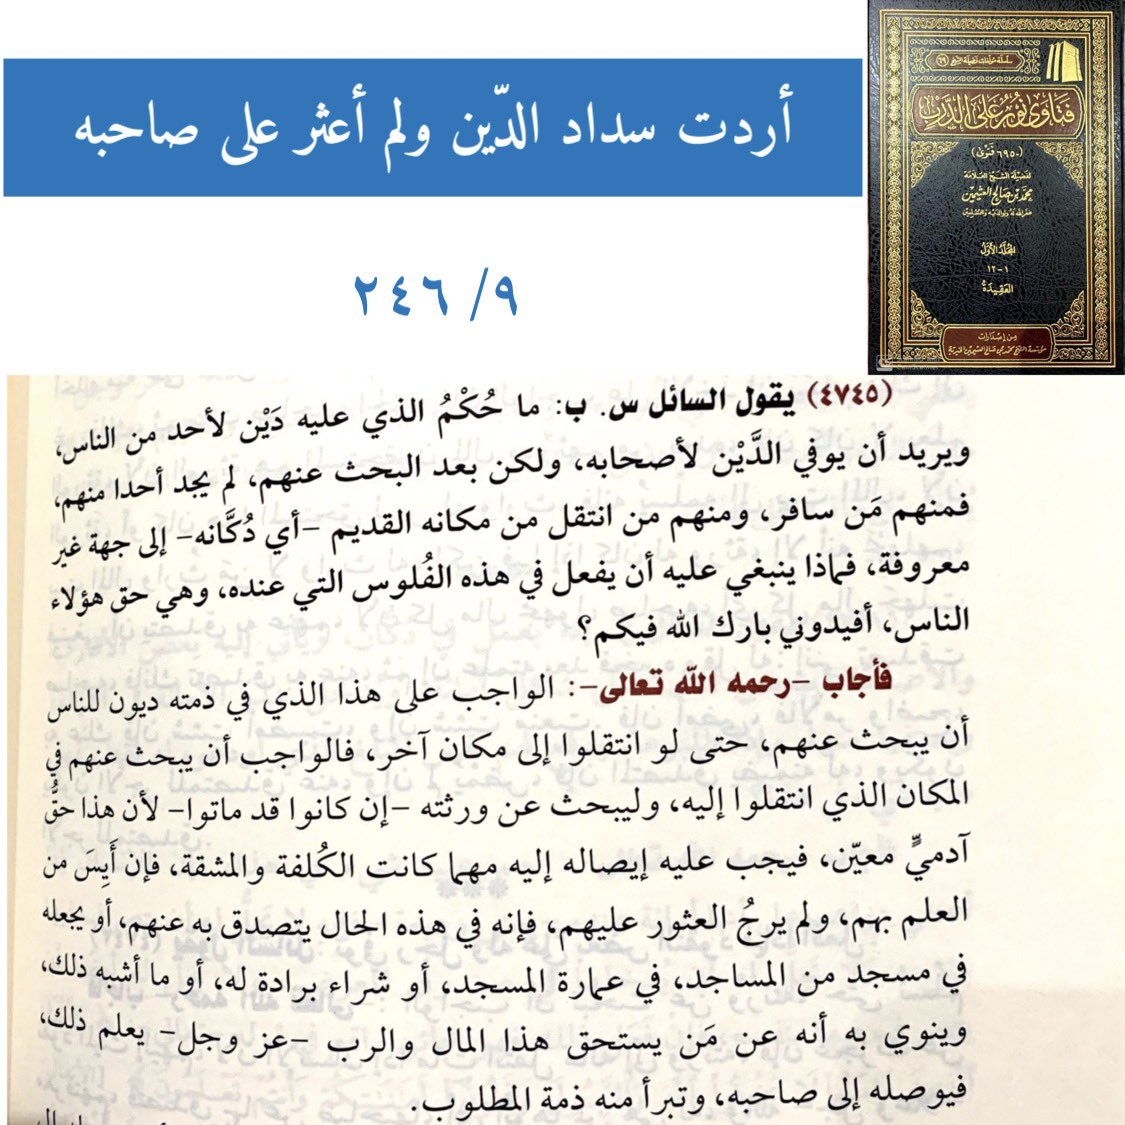 أردت سداد الدّين ولم أعثر على صاحبه
٩/ ٢٤٦
سلسلة مؤلفات فضيلة الشيخ (٦٩)
فتاوى نور على الدرب
(٦٩٥٠ فتوى)
لفضيلة الشيخ العلامة
محمد بن صالح العثيمين
غفر الله له ولوالديه وللمسلمين
المجلد الأول
١-١٢
العقيدة
من إصدارات
مؤسسة الشيخ محمد بن صالح العثيمين الخيرية
(٤٧٤٥) يقول السائل س. ب: ما حُكْمُ الذي عليه دَيْن لأحد من الناس،
ويريد أن يوفي الدَّيْن لأصحابه، ولكن بعد البحث عنهم، لم يجد أحدا منهم،
فمنهم مَن سافر، ومنهم من انتقل من مكانه القديم -أي دُكَّانه- إلى جهة غير
معروفة، فماذا ينبغي عليه أن يفعل في هذه الفُلوس التي عنده، وهي حق هؤلاء
الناس، أفيدوني بارك الله فيكم؟
فأجاب -رحمه الله تعالى-: الواجب على هذا الذي في ذمته ديون للناس
أن يبحث عنهم، حتى لو انتقلوا إلى مكان آخر، فالواجب أن يبحث عنهم في
المكان الذي انتقلوا إليه، وليبحث عن ورثته -إن كانوا قد ماتوا- لأن هذا حقُّ
آدميٍّ معيّن، فيجب عليه إيصاله إليه مهما كانت الكُلفة والمشقة، فإن أَيِسَ من
العلم بهم، ولم يرجُ العثور عليهم، فإنه في هذه الحال يتصدق به عنهم، أو يجعله
في مسجد من المساجد، في عمارة المسجد، أو شراء برادة له، أو ما أشبه ذلك،
وينوي به أنه عن مَن يستحق هذا المال والرب -عز وجل- يعلم ذلك،
فيوصله إلى صاحبه، وتبرأ منه ذمة المطلوب.